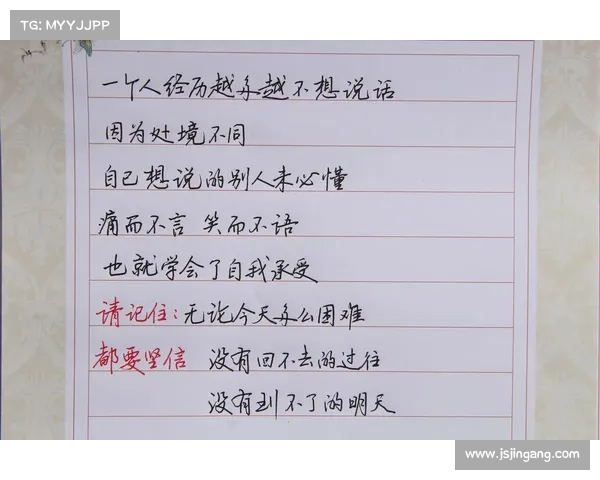 TG: MYYJJPP
一个人经历越多越不想说话
因为处境不同
自己想说的别人未必懂
痛而不言 笑而不语
也就学会了自我承受
请记住：无论今天多么困难
都要坚信 没有回不去的过往
没有到不了的明天
www.jsjingang.com